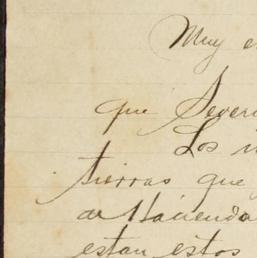 Muy
que Severi
Los
tierras que
de Hacienda
estan estos